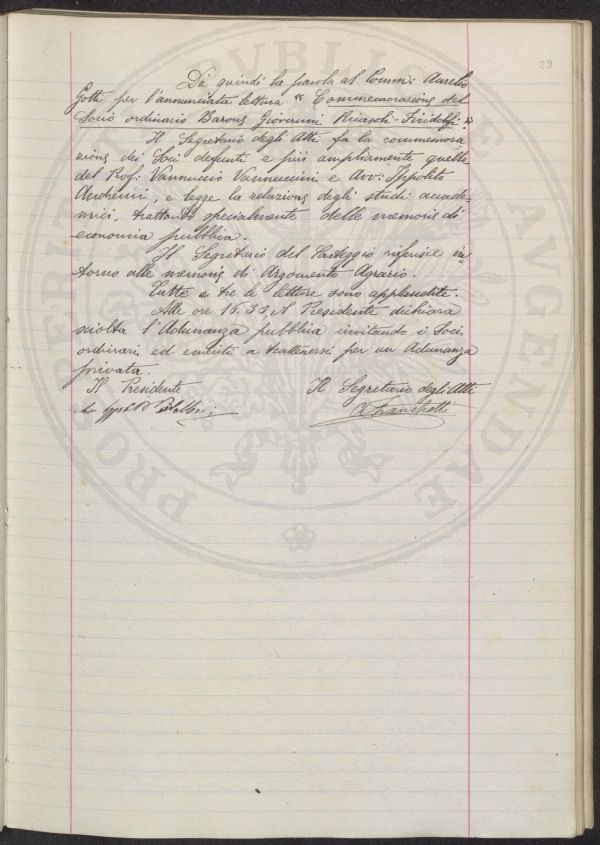 29
Dà quindi la parola al Comm: Aurelio
Gotti per l'annunciata lettura "Commemorazione del
Socio ordinario Barone Giovanni Ricasoli-Firidolfi."
Il Segretario degli Atti fa la commemora
zione dei Soci defunti e più ampiamente quelle
del Prof: Vannuccio Vannuccini e Avv: Ippolito
Andreini, e legge la relazione degli studi accade-
mici, trattando specialmente delle memorie di
economia pubblica.
Il Segretario del Carteggio riferisce in-
torno alle memorie di Argomento Agrario.
Tutte e tre le letture sono applaudite.
Alle ore 15.33, il Presidente dichiara
sciolta l'Adunanza pubblica invitando i Soci
ordinari ed emeriti a trattenersi per un Adunanza
privata.
Il Presidente
Il Segretario degli Atti
Franchetti
PROSPERITATI PVBLICAE AVGENDAE